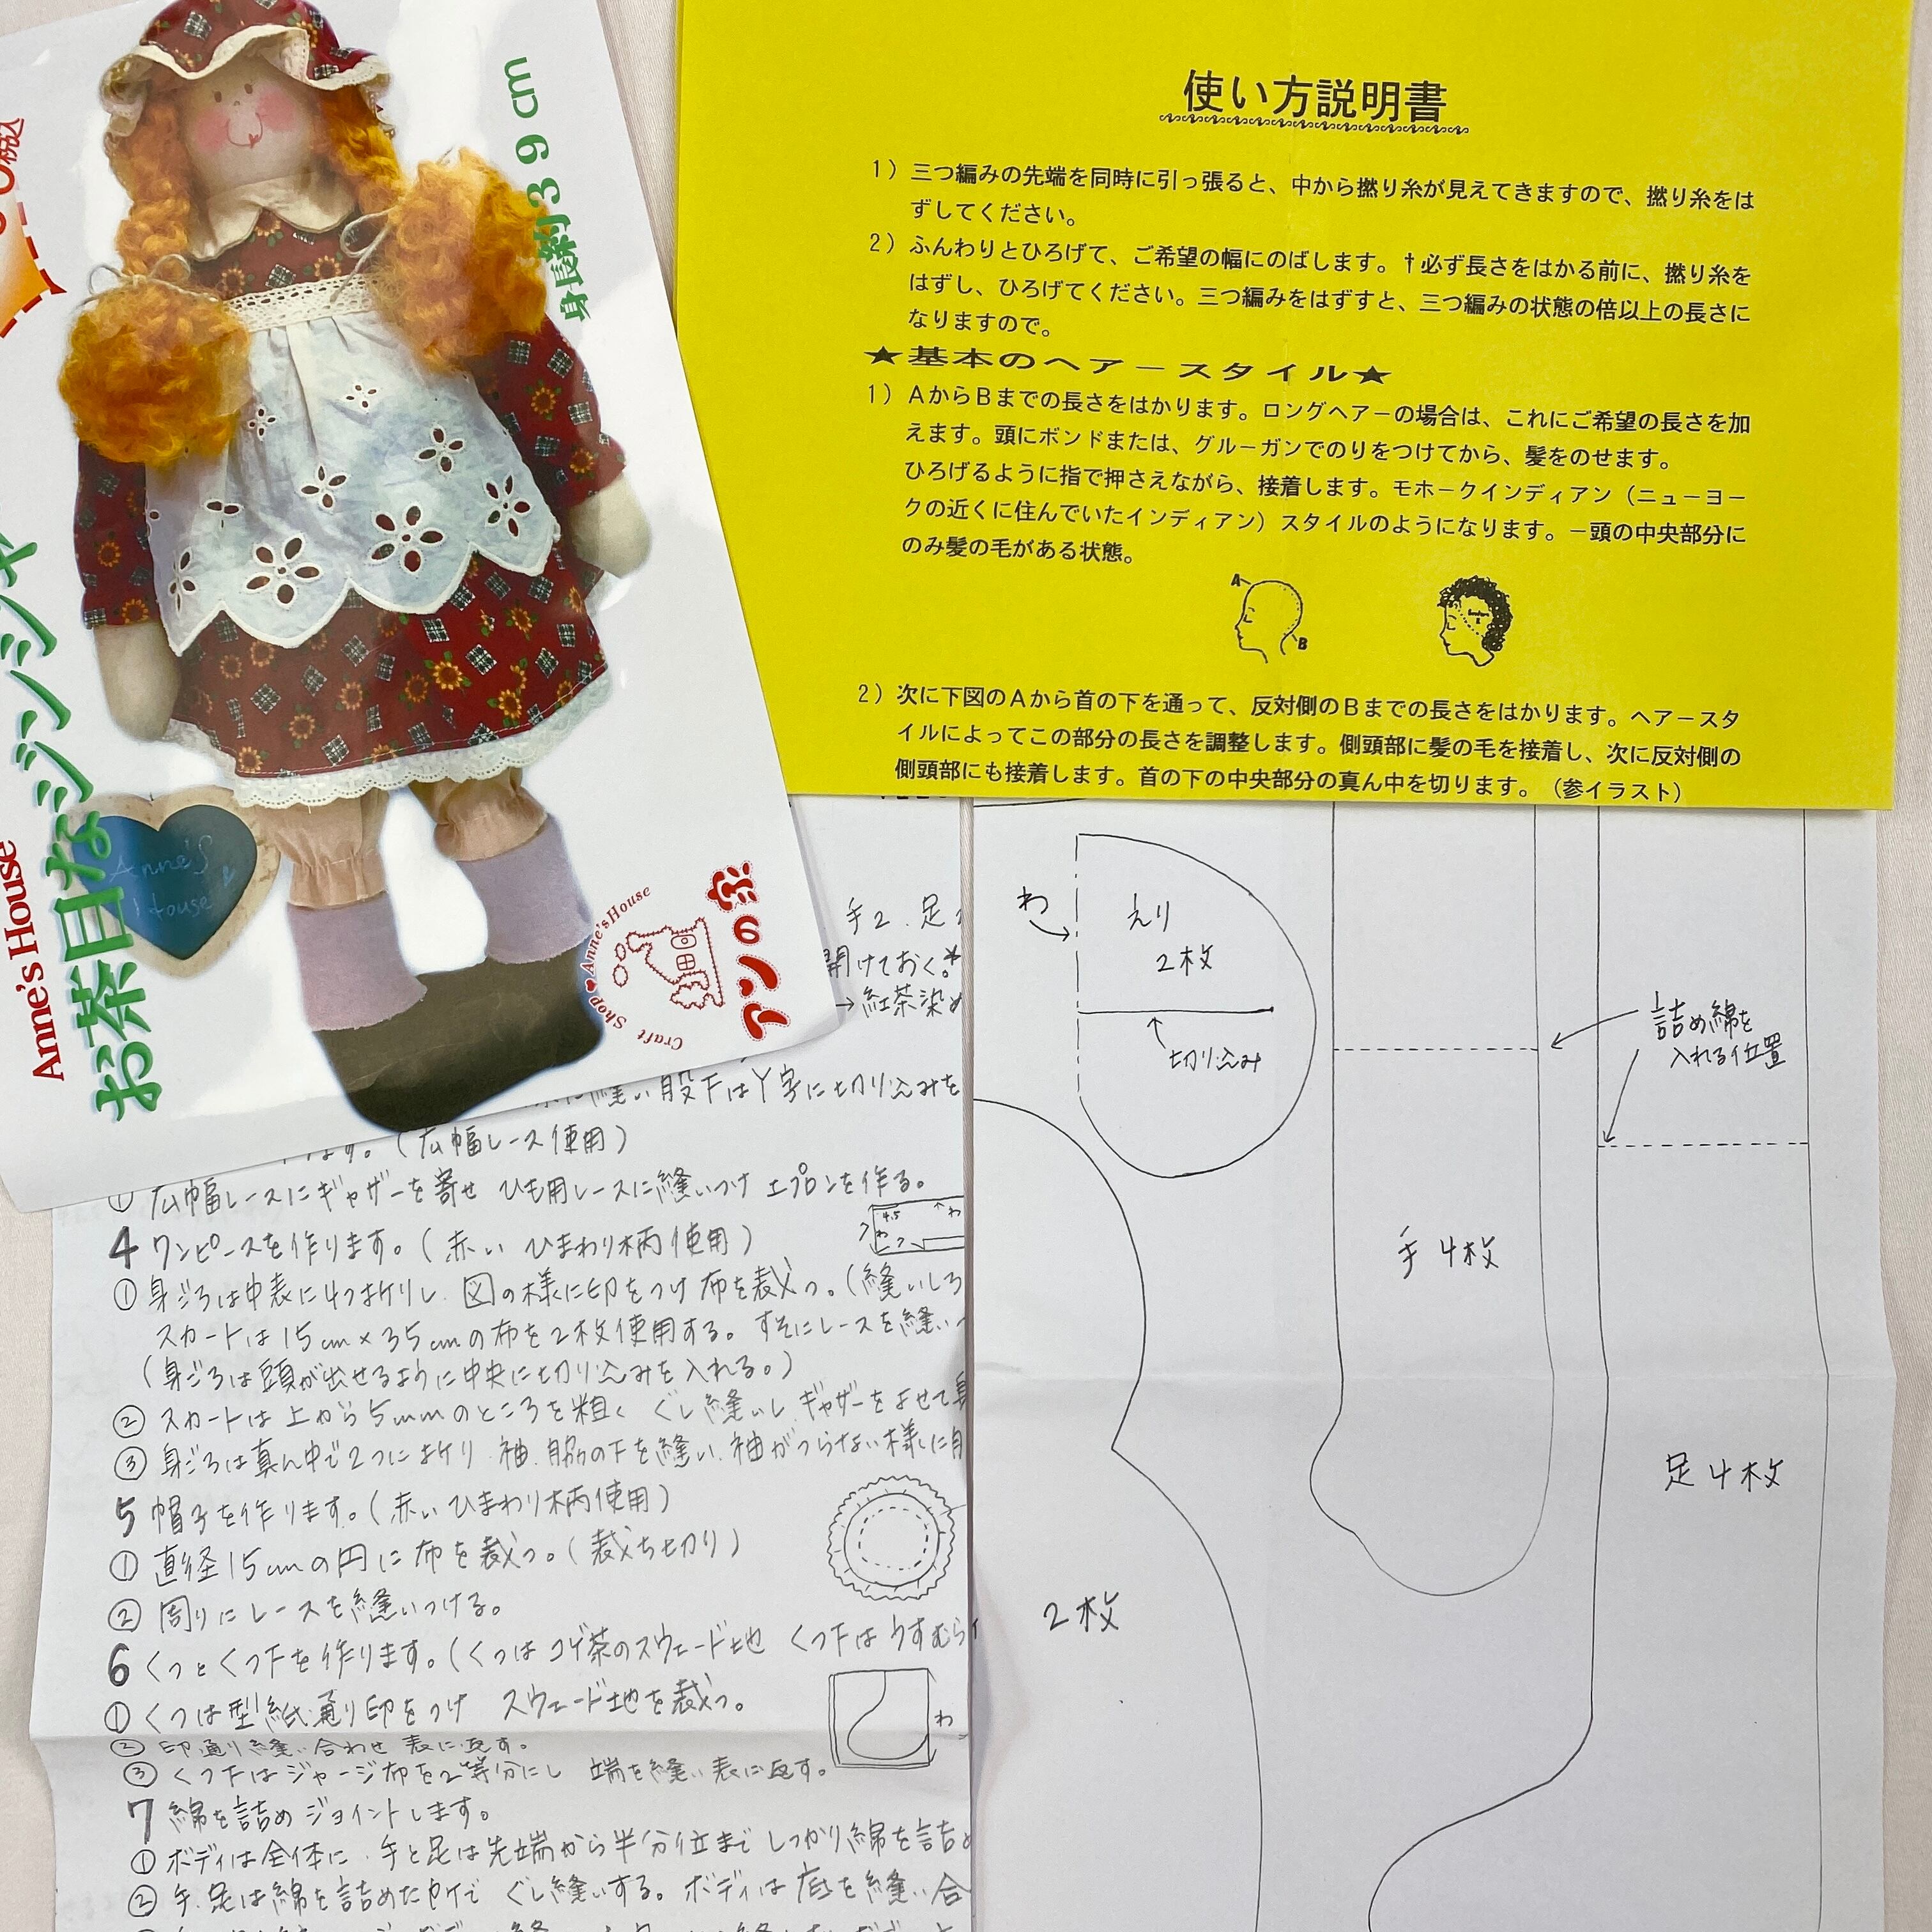 お茶目なジンジャ
身長約39cm
Anne's House
Anne's House
Craft Shop♥Anne's House
アンの家
使い方説明書
1）三つ編みの先端を同時に引っ張ると、中から撚り糸が見えてきますので、撚り糸をは
ずしてください。
2）ふんわりとひろげて、ご希望の幅にのばします。†必ず長さをはかる前に、撚り糸を
はずし、ひろげてください。三つ編みをはずすと、三つ編みの状態の倍以上の長さに
なりますので。
★基本のヘアースタイル★
1）AからBまでの長さをはかります。ロングヘアーの場合は、これにご希望の長さを加
えます。頭にボンドまたは、グルーガンでのりをつけてから、髪をのせます。
ひろげるように指で押さえながら、接着します。モホークインディアン（ニューヨー
クの近くに住んでいたインディアン）スタイルのようになります。－頭の中央部分に
のみ髪の毛がある状態。
A
B
2）次に下図のAから首の下を通って、反対側のBまでの長さをはかります。ヘアースタ
イルによってこの部分の長さを調整します。側頭部に髪の毛を接着し、次に反対側の
側頭部にも接着します。首の下の中央部分の真ん中を切ります。（参イラスト）
手2.足
開けておく。*
→紅茶染め
縫い股下はY字に切り込みを
ます。(広幅レース使用)
① 広幅レースにギャザーを寄せ ひも用レースに縫いつけ エプロンを作る。
4 ワンピースを作ります。(赤い ひまわり柄使用)
4.5
わ
わ
① 身ごろは中表に4つ折りし 図の様に印をつけ 布を裁つ。(縫いしろ
スカートは15cm×35cmの布を2枚使用する。すそにレースを縫い
(身ごろは頭が出せるように中央に切り込みを入れる。)
② スカートは上から5mmのところを粗く ぐし縫いし ギャザーをよせて身
③ 身ごろは真ん中で2つに折り 袖.脇の下を縫い 袖がつらない様に
5 帽子を作ります。(赤いひまわり柄使用)
① 直径15cmの円に布を裁つ。(裁ち切り)
② 周りにレースを縫いつける。
6 くつとくつ下を作ります。(くつはコゲ茶のスウェード地 くつ下はうすむら
① くつは型紙通り印をつけ スウェード地を裁つ。
② 印通り縫い合わせ 表に返す。
③ くつ下はジャージ布を2等分にし 端を縫い表に返す。
わ
7 綿を詰めジョイントします。
① ボディは全体に.手と足は先端から半分位まで しっかり綿を詰め
② 手.足は綿を詰めたカケで ぐし縫いする。ボディは底を縫い合
わ
えり
2枚
切り込み
詰め綿を
入れる位置
手4枚
足4枚
2枚